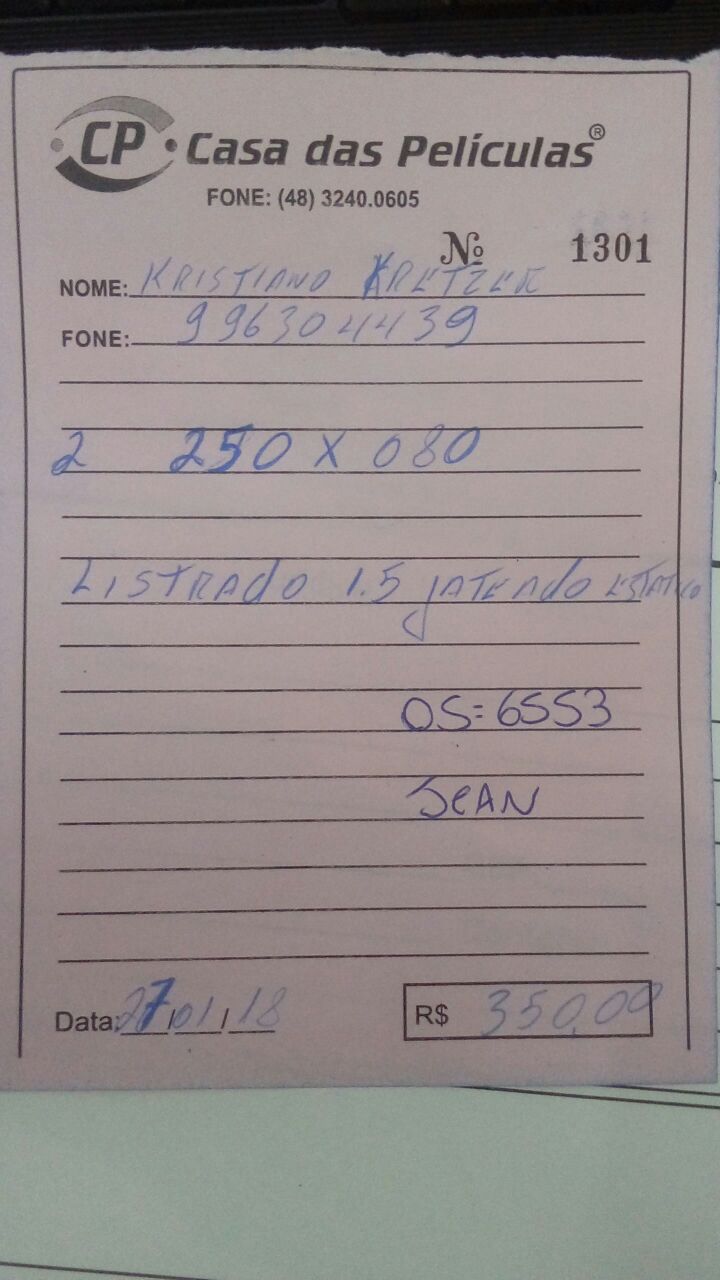 CP Casa das Películas®
FONE: (48) 3240.0605
Nº 1301
NOME: KRISTIANO KRETZER
FONE: 996304439
2 250 X 080
LISTRADO 1.5 JATEADO ESTATICO
OS=6553
JEAN
Data: 27/01/18 R$ 350,00